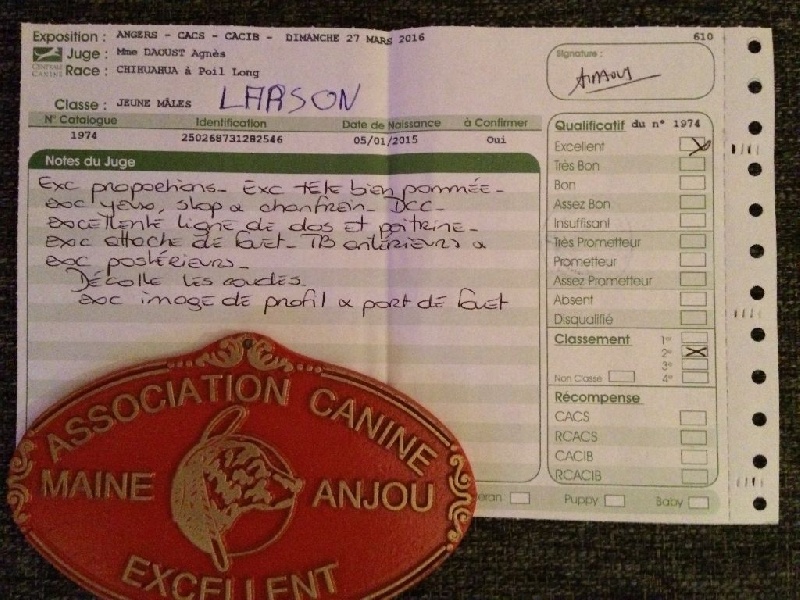 Exposition : ANGERS - CACS - CACIB - DIMANCHE 27 MARS 2016
610
Juge : Mme DAOUST Agnès
Race : CHIHUAHUA à Poil Long
Signature :
Classe : JEUNE MÂLES LARSON
N° Catalogue Identification Date de Naissance à Confirmer
1974 250268731282546 05/01/2015 Oui
Notes du Juge
Exc proportions - Exc tête bien pommée -
exc yeux, stop & chanfrein - DCC -
excellente ligne de dos et poitrine -
exc attache de fouet - TB antérieurs &
exc postérieurs -
Décolle les coudes.
exc image de profil & port de fouet
Qualificatif du n° 1974
Excellent
Très Bon
Bon
Assez Bon
Insuffisant
Très Prometteur
Prometteur
Assez Prometteur
Absent
Disqualifié
Classement 1er
2e
3e
Non Classé 4e
Récompense
CACS
RCACS
CACIB
RCACIB
Puppy Baby
ASSOCIATION CANINE
MAINE ANJOU
EXCELLENT